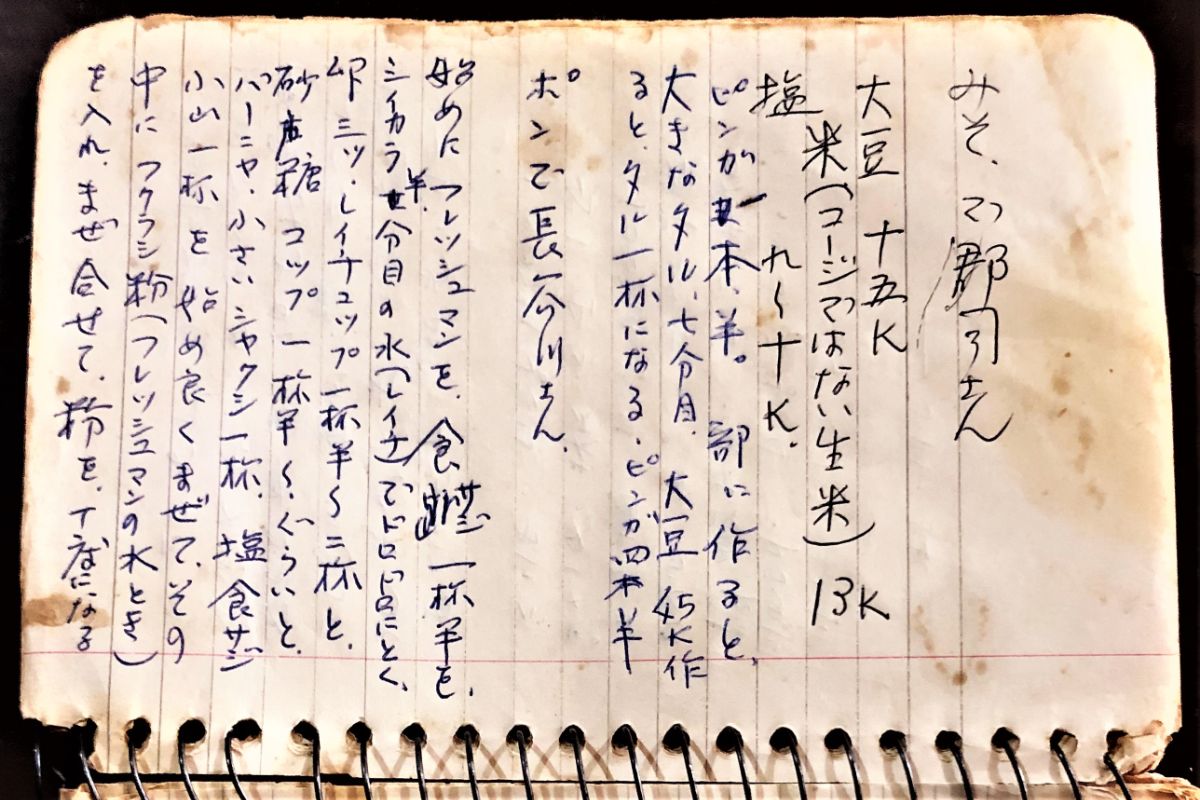 みそ、でつ郡司さん
大豆 十五K
米(コージではない生米)13K
塩 九〜十K.
ピンガ 本、半。 部に作ると、
大きなタル、七分目、大豆45K作
ると、タル一杯になる、ピンガ四本半
ポンで長谷川さん、
始めにフレッシュマンを、食サジ一杯半を、
シイカラ半分目の水(レイテ)でドロドロにとく、
卵三ツ、レイテコップ一杯半〜二杯と、
砂糖コップ一杯半〜、ぐらいと、
バーニャ、小さいシャクシ一杯、塩食サジ
小山一杯を始め良くまぜて、その
中にフクラシ粉(フレッシュマンの水とき)
を入れ、まぜ合せて、粉を、丁度になる